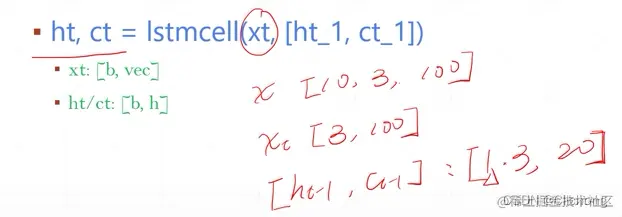 ht, ct = lstmcell(xt, [ht_1, ct_1])
xt: [b, vec]
ht/ct: [b, h]
x [10, 3, 100]
xt [3, 100]
[ht-1, ct-1] : [1, 3, 20]